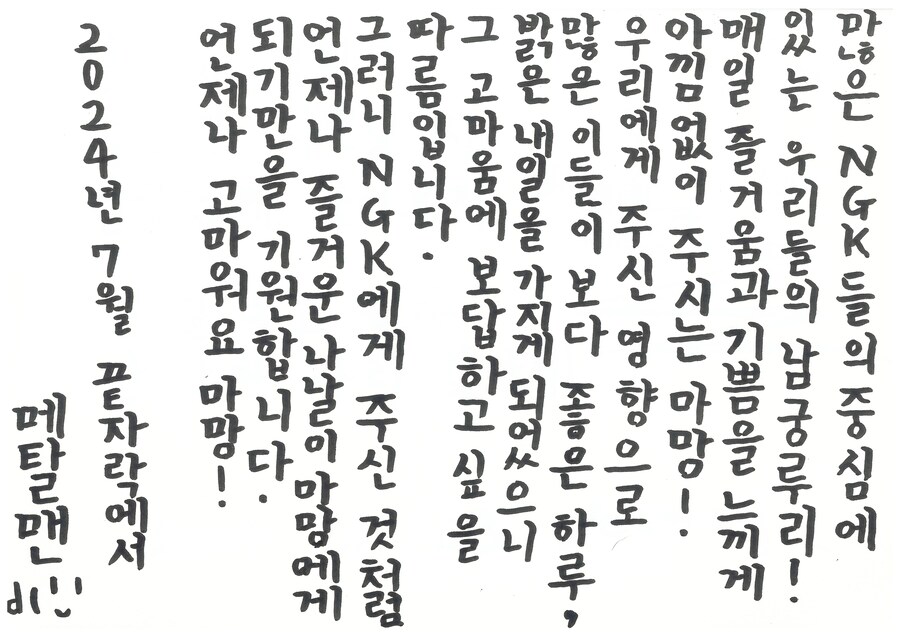 많은 NGK들의 중심에
있는 우리들의 남궁루리!
매일 즐거움과 기쁨을 느끼게
아낌없이 주시는 마망!
우리에게 주신 영향으로
많은 이들이 보다 좋은 하루,
밝은 내일을 가지게 되었으니
그 고마움에 보답하고 싶을
따름입니다.
그러니 NGK에게 주신 것처럼
언제나 즐거운 나날이 마망에게
되기만을 기원합니다.
언제나 고마워요 마망!
2024년 7월 끝자락에서
메탈맨